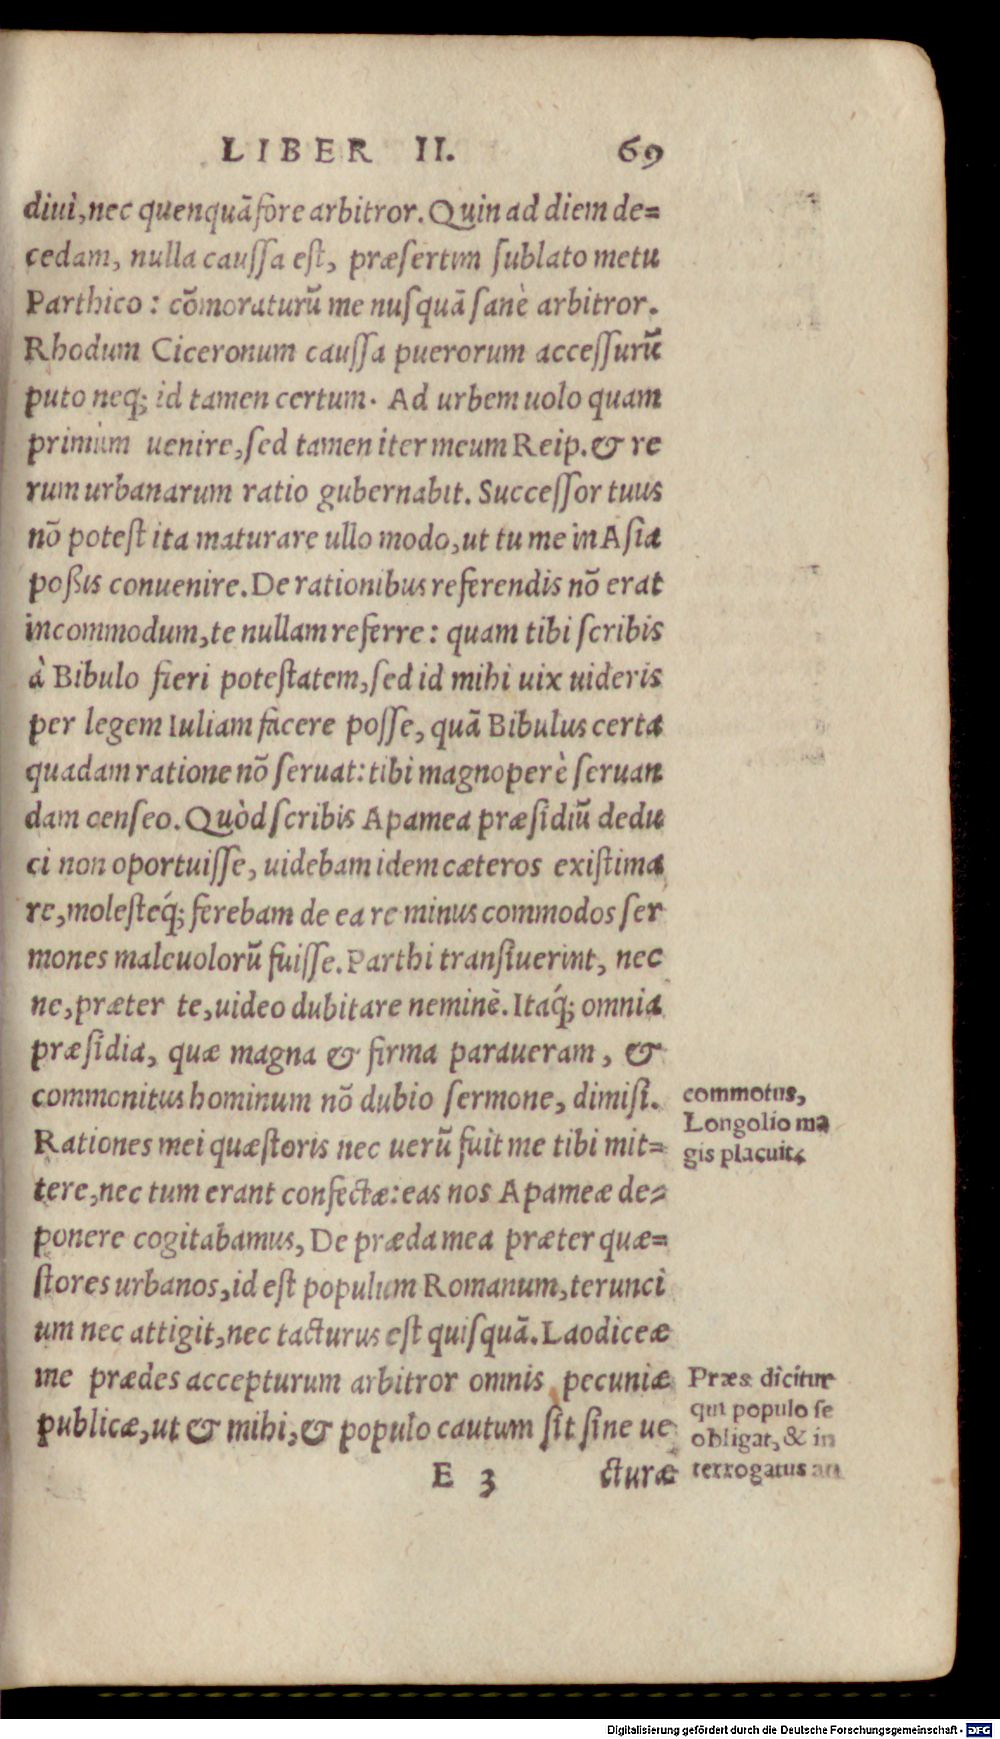 LIBER II. 69
diui, nec quenquā fore arbitror. Quin ad diem de=
cedam, nulla caussa est, præsertim sublato metu
Parthico: cōmoraturū me nusquā sanè arbitror.
Rhodum Ciceronum caussa puerorum accessurū
puto neq; id tamen certum. Ad urbem uolo quam
primùm uenire, sed tamen iter meum Reip. & re
rum urbanarum ratio gubernabit. Successor tuus
nō potest ita maturare ullo modo, ut tu me in Asia
poßis conuenire. De rationibus referendis nō erat
incommodum, te nullam referre: quam tibi scribis
à Bibulo fieri potestatem, sed id mihi uix uideris
per legem Iuliam facere posse, quā Bibulus certa
quadam ratione nō seruat: tibi magnoperè seruan
dam censeo. Quòd scribis Apamea præsidiū dedu
ci non oportuisse, uidebam idem cæteros existima
re, molesteq́; ferebam de ea re minus commodos ser
mones maleuolorū fuisse. Parthi transiuerint, nec
ne, præter te, uideo dubitare neminē. Itaq́; omnia
præsidia, quæ magna & firma paraueram, &
commonitus hominum nō dubio sermone, dimisi.
Rationes mei quæstoris nec uerū fuit me tibi mit=
tere, nec tum erant confectæ: eas nos Apameæ de=
ponere cogitabamus, De præda mea præter quæ=
stores urbanos, id est populum Romanum, terunci
um nec attigit, nec tacturus est quisquā. Laodiceæ
me prædes accepturum arbitror omnis pecuniæ
publicæ, ut & mihi, & populo cautum sit sine ue
E 3 cturæ
commotus,
Longolio ma
gis placuit.
Præs dicitur
qui populo se
obligat, & in
terrogatus an
Digitalisierung gefördert durch die Deutsche Forschungsgemeinschaft - DFG